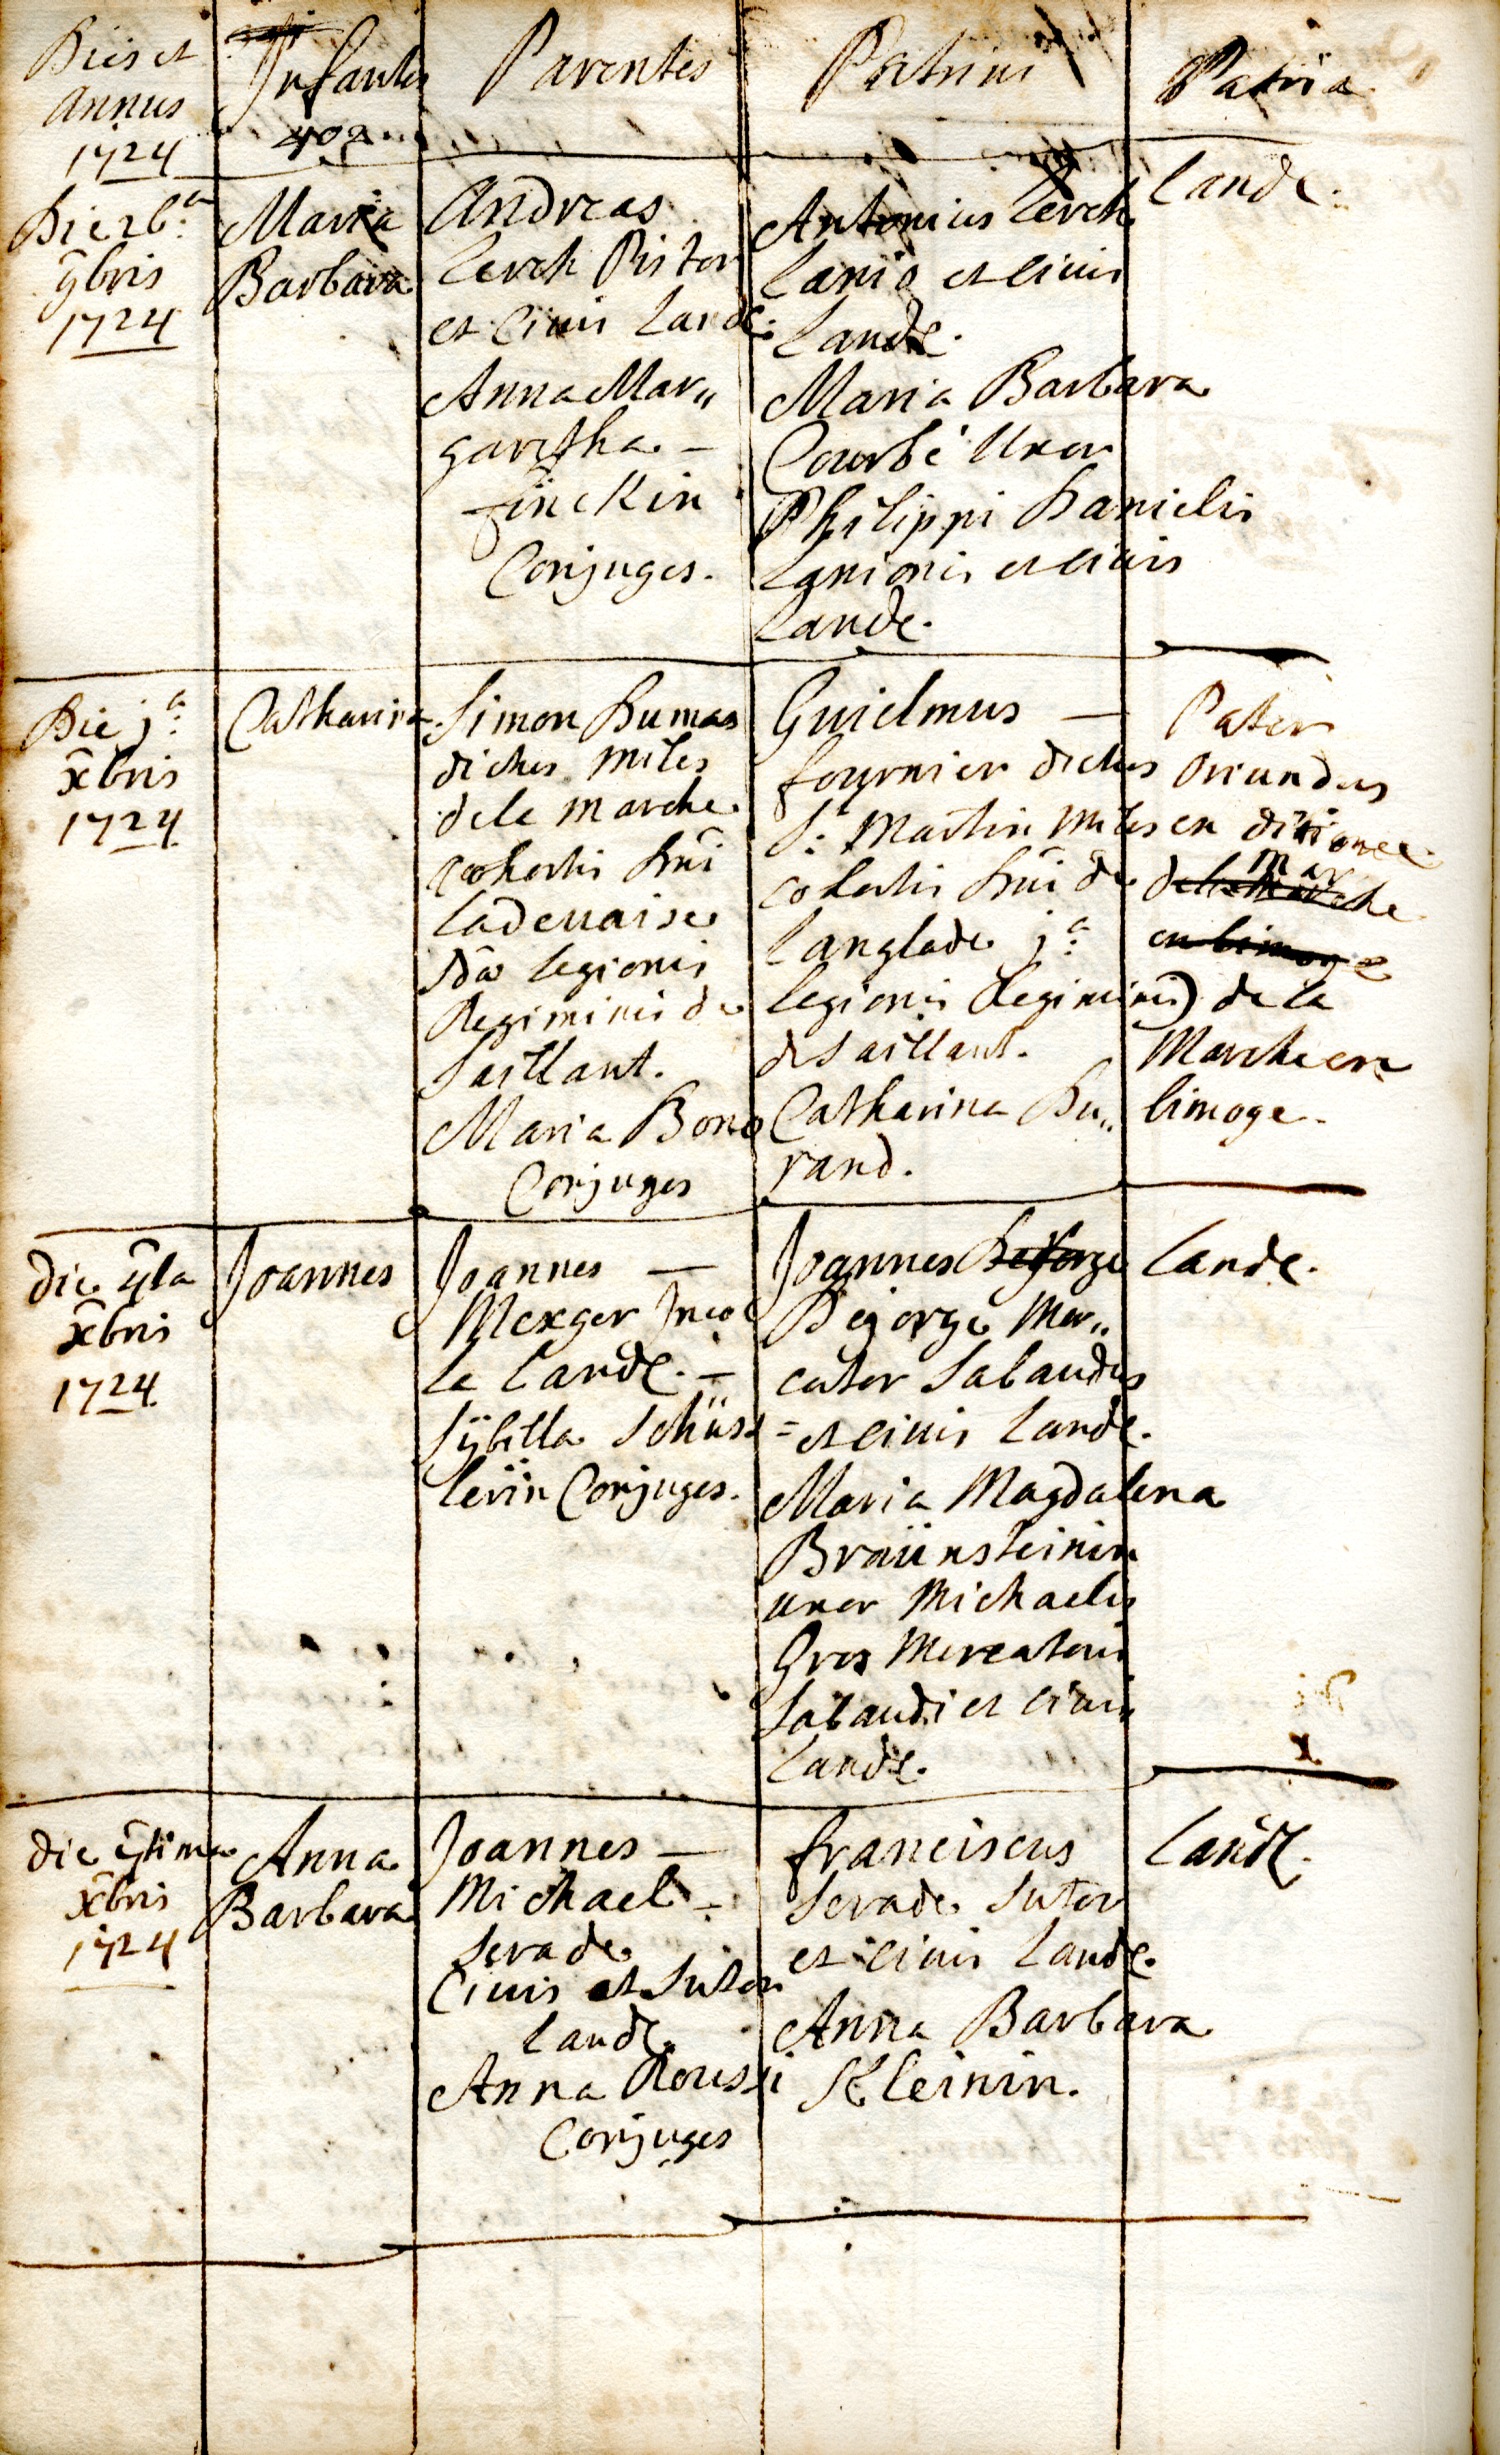 Dies et
annus
1724
Infantes
402
Parentes
Patrini
Patria
Die 26.a
9bris
1724
Maria
Barbara
Andreas
Lerch Pistor
et Civis Landæ.
Anna Mar„
garetha –
finckin
Conjuges.
Antonius Lerch
Lanio et civis
Landæ.
Maria Barbara
Courbé Uxor
Philippi Danielis
Lanionis et civis
Landæ.
Landæ.
Die j.a
xbris
1724
Catharina
Simon Dumas
dictus miles
dele marche
cohortis Dni
Ladevaise
2dæ legionis
Regiminis de
Saillant.
Maria Bono
Conjuges
Guielmus –
fournier dictus
S: Martin miles
cohortis Dni de
Langlade j.a
legionis Regiminis
de Saillant.
Catharina Du„
rand.
Pater
oriundus
ex ditione
mar
de la
Marche en
limoge.
die
xbris
1724
Joannes
Joannes –
Mexger Inco
læ Landæ. –
Sÿbilla Schüss
lerin Conjuges.
Joannes Dejorge
Dejorge Mer„
cator Sabaudus
= et civis Landæ.
Maria Magdalena
Braünsteinin
uxor Michaelis
Gros Mercatoris
Sabaudi et civis
Landæ.
Landæ.
die 7tima
xbris
1724
Anna
Barbara
Joannes –
Michael –
Serade
Civis et Sutor
Landæ.
Anna Roussi
Conjuges
franciscus
Serade Sutor
et civis Landæ.
Anna Barbara
Kleinin.
Landæ.